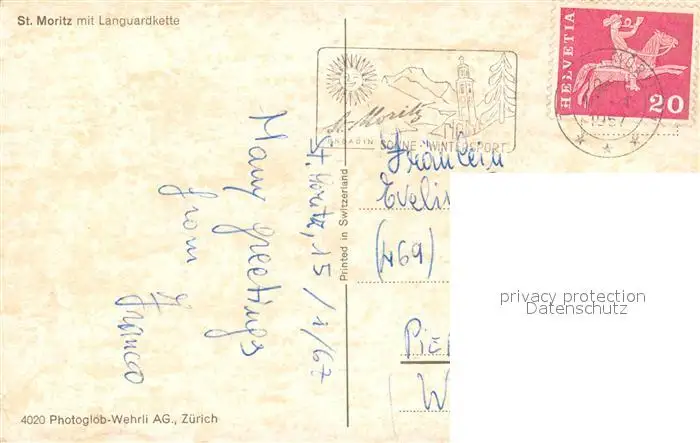 St. Moritz mit Languardkette
HELVETIA
20
St. Moritz
ENGADIN SONNE + WINTERSPORT
1967
St. Moritz, 15/1/67
Many greetings
from
Franco
Printed in Switzerland
Fräulein
Evelin
(469)
PIE
W
privacy protection
Datenschutz
4020 Photoglob-Wehrli AG., Zürich